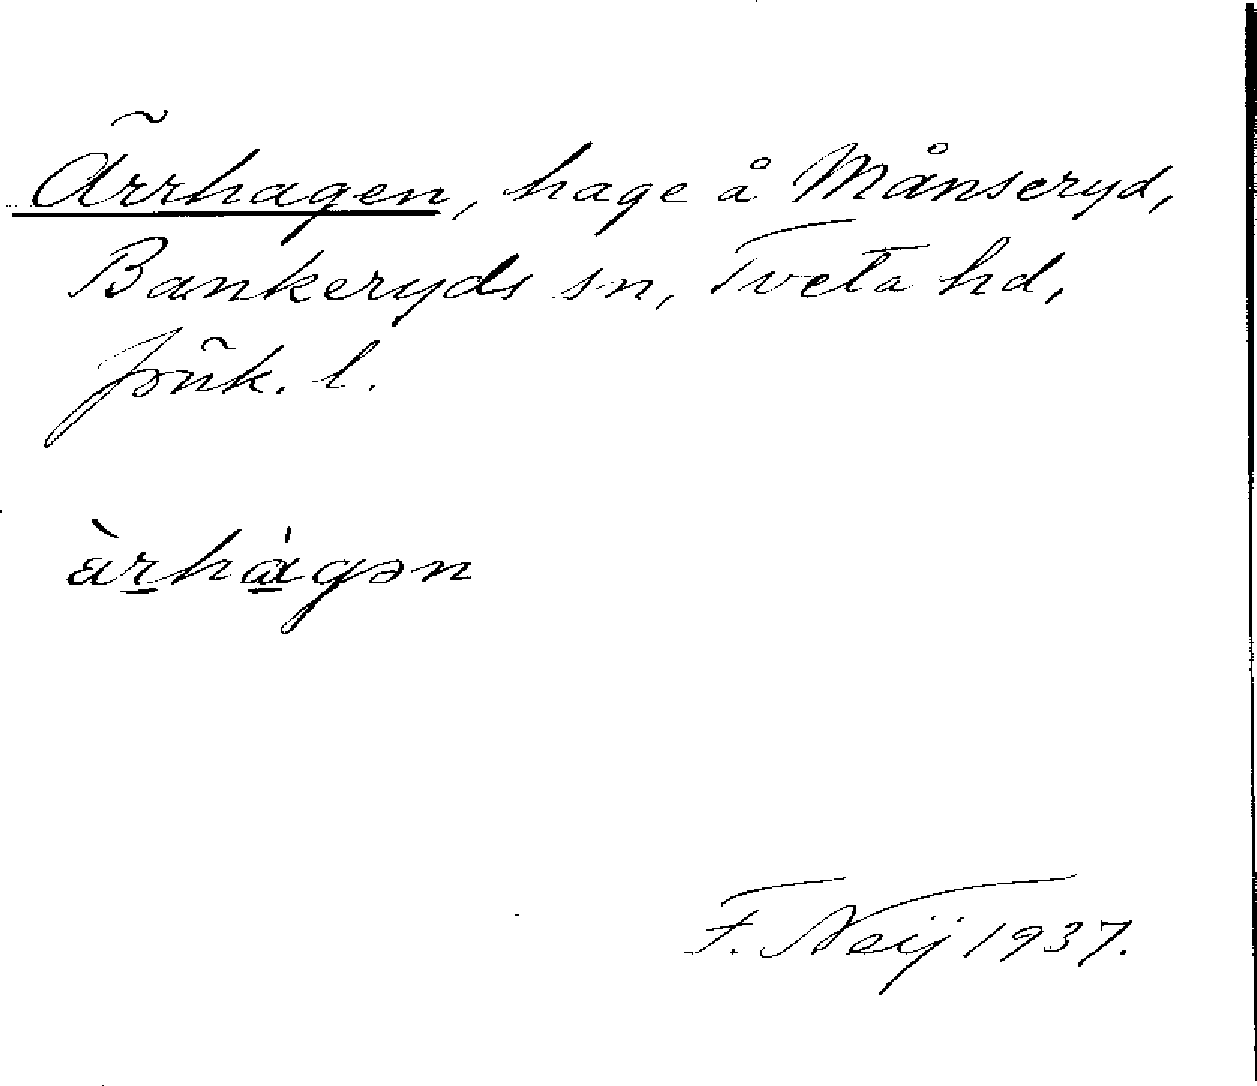 Ärrhagen, hage å Månseryd,
Bankeryds sn, Tveta hd,
Jönk. l.
ärhàgən
F. Neij 1937.